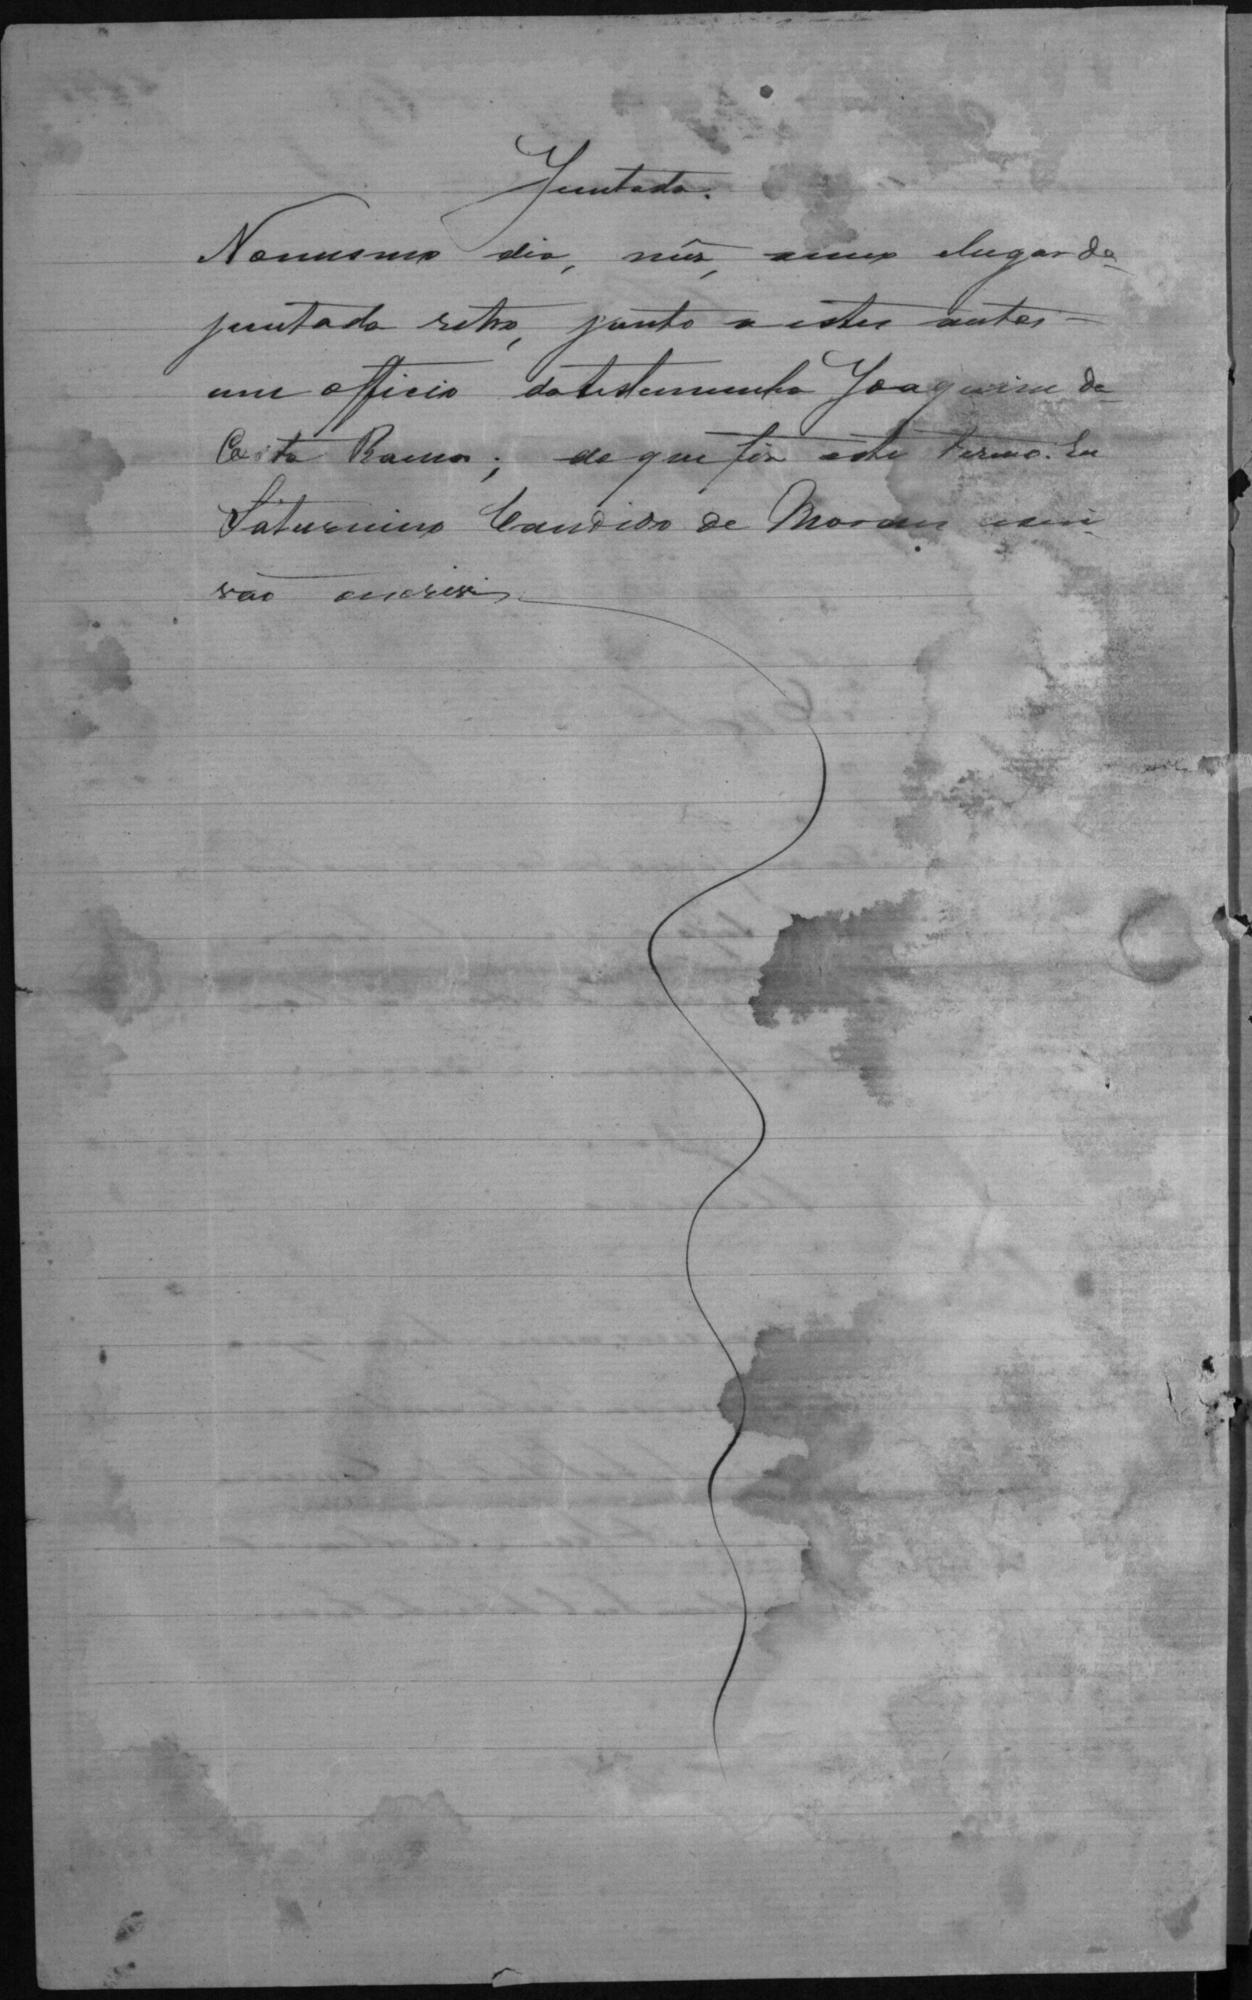 Juntada.
No mesmo dia, mês, anno e lugar da
juntada retro, junto a estes autos
um officio da testemunha Joaquim da
Costa Ramos; do que fiz este termo. Eu
Saturnino Candido de Moraes escri
vão escrevi